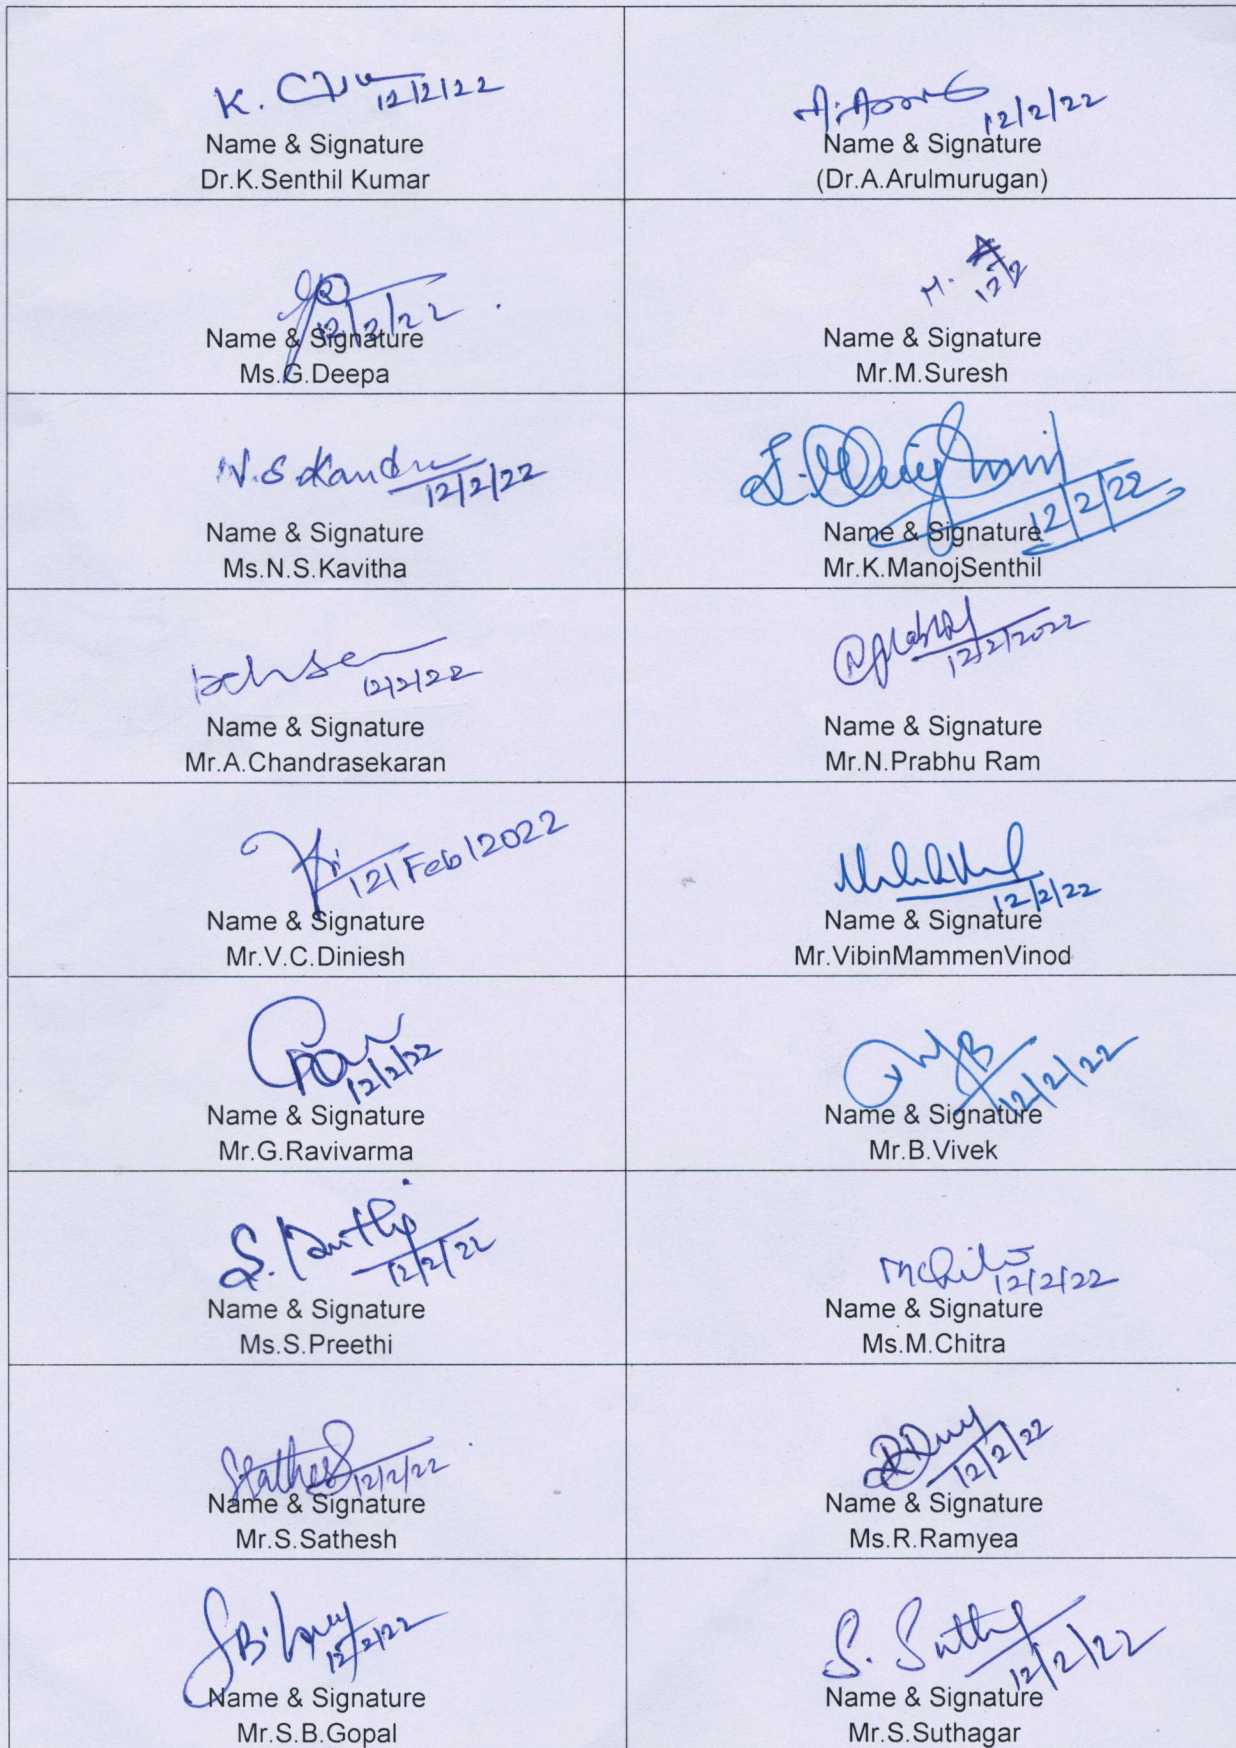 K. 12/2/22
12/2/22
Name & Signature
Dr.K.Senthil Kumar
Name & Signature
(Dr.A.Arulmurugan)
12/2/22
M. 12/2
Name & Signature
Ms.G.Deepa
Name & Signature
Mr.M.Suresh
N.S. 12/2/22
12/2/22
Name & Signature
Ms.N.S.Kavitha
Name & Signature
Mr.K.ManojSenthil
12/2/22
12/2/2022
Name & Signature
Mr.A.Chandrasekaran
Name & Signature
Mr.N.Prabhu Ram
12/Feb/2022
12/2/22
Name & Signature
Mr.V.C.Diniesh
Name & Signature
Mr.VibinMammenVinod
12/2/22
12/2/22
Name & Signature
Mr.G.Ravivarma
Name & Signature
Mr.B.Vivek
S. 12/2/22
12/2/22
Name & Signature
Ms.S.Preethi
Name & Signature
Ms.M.Chitra
12/2/22
12/2/22
Name & Signature
Mr.S.Sathesh
Name & Signature
Ms.R.Ramyea
12/2/22
S. 12/2/22
Name & Signature
Mr.S.B.Gopal
Name & Signature
Mr.S.Suthagar